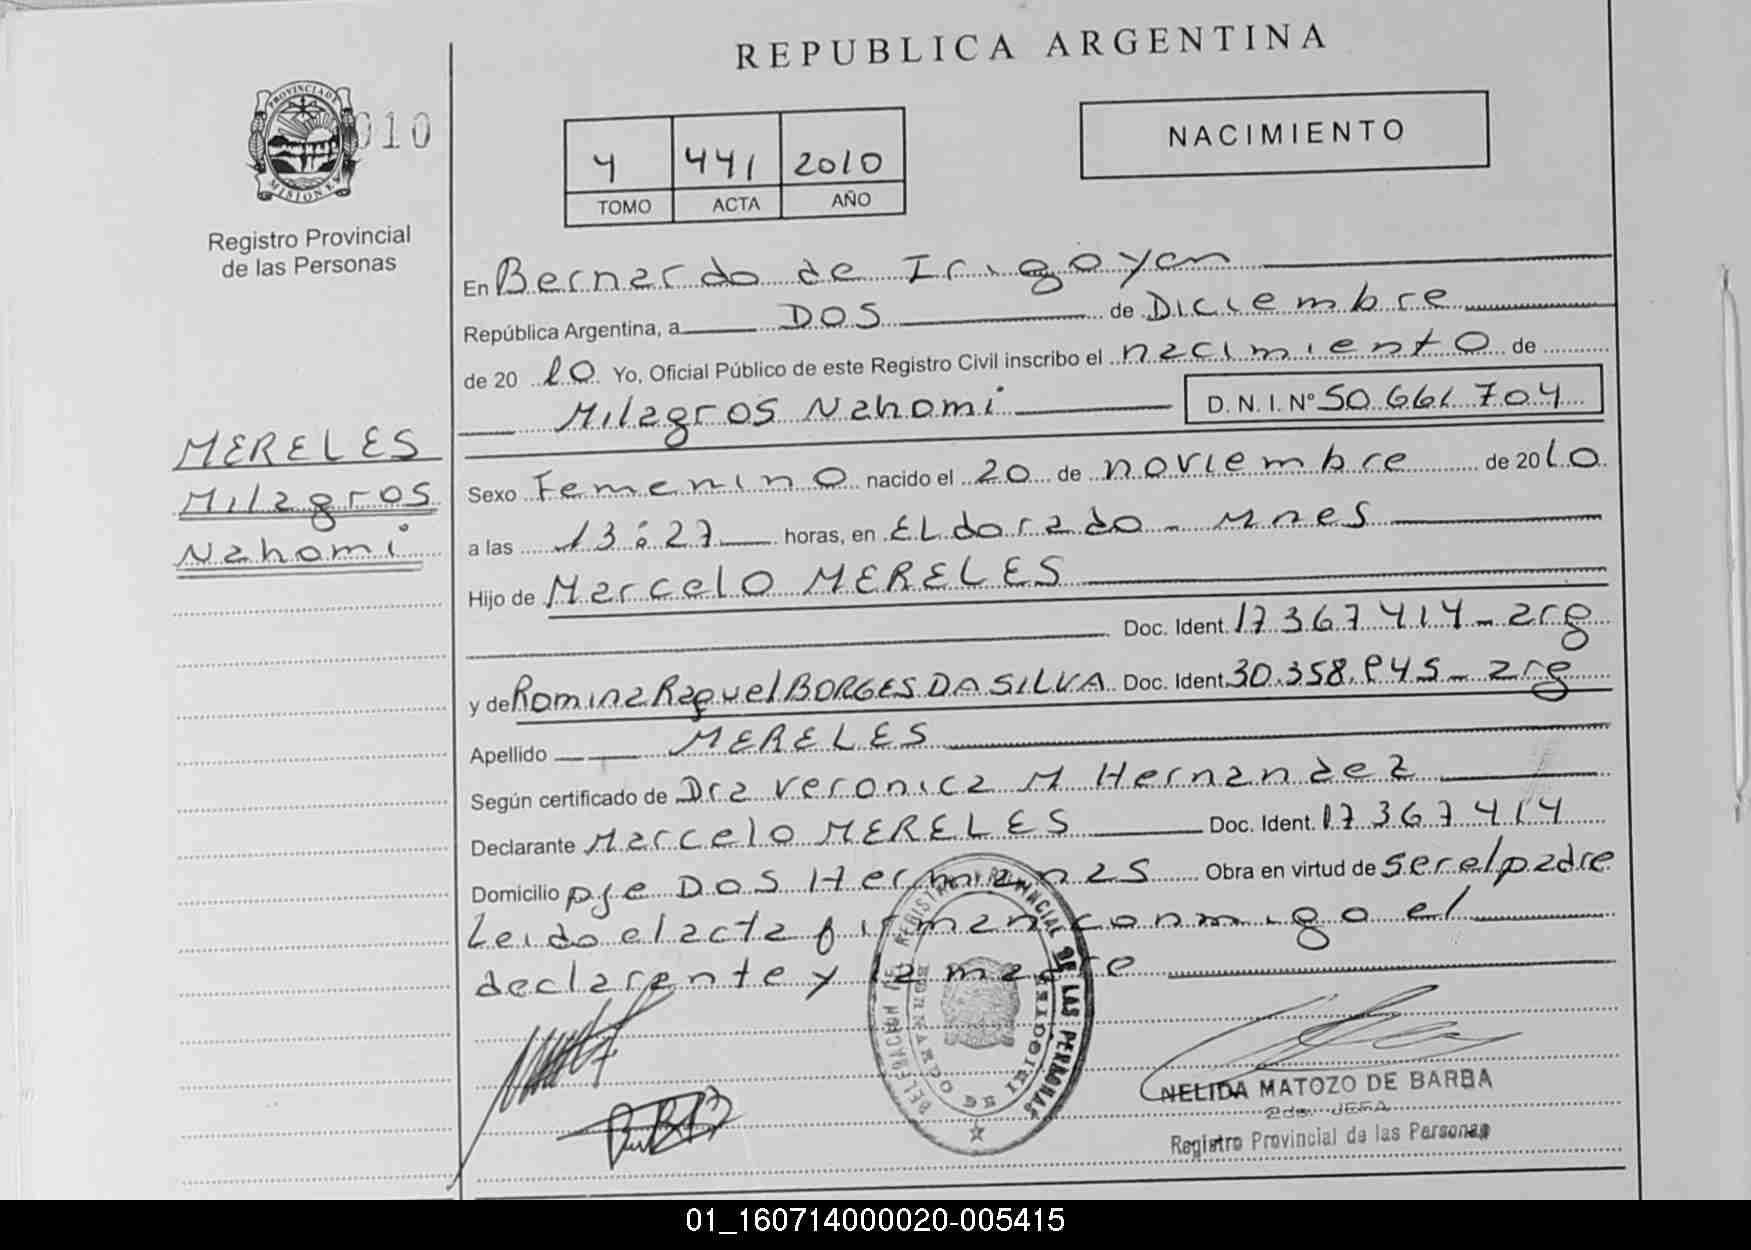 REPUBLICA ARGENTINA
PROVINCIA DE MISIONES
010
Registro Provincial
de las Personas
4 441 2010
TOMO ACTA AÑO
NACIMIENTO
En Bernardo de Irigoyen
República Argentina, a DOS de Diciembre
de 20 10 Yo, Oficial Público de este Registro Civil inscribo el nacimiento de
Milagros Nahomi D. N. I. Nº 50.661.704
MERELES
Milagros
Nahomi
Sexo Femenino nacido el 20 de noviembre de 2010
a las 13:27 horas, en ELdorado - Mnes
Hijo de Marcelo MERELES
Doc. Ident. 17367414 - arg
y de Romina Raquel BORGES DA SILVA Doc. Ident. 30.358. - arg
Apellido MERELES
Según certificado de Dra Veronica M Hernandez
Declarante Marcelo MERELES Doc. Ident. 17367414
Domicilio pje DOS Hermanas Obra en virtud de ser el padre
Leido el acta firman conmigo el
declarante y la madre
REGISTRO PROVINCIAL DE LAS PERSONAS
NELIDA MATOZO DE BARBA
2da. JEFA
Registro Provincial de las Personas
01_160714000020-005415